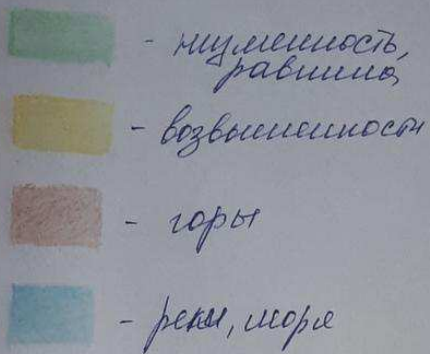 - низменность,
равнина
- возвышенность
- горы
- реки, моря